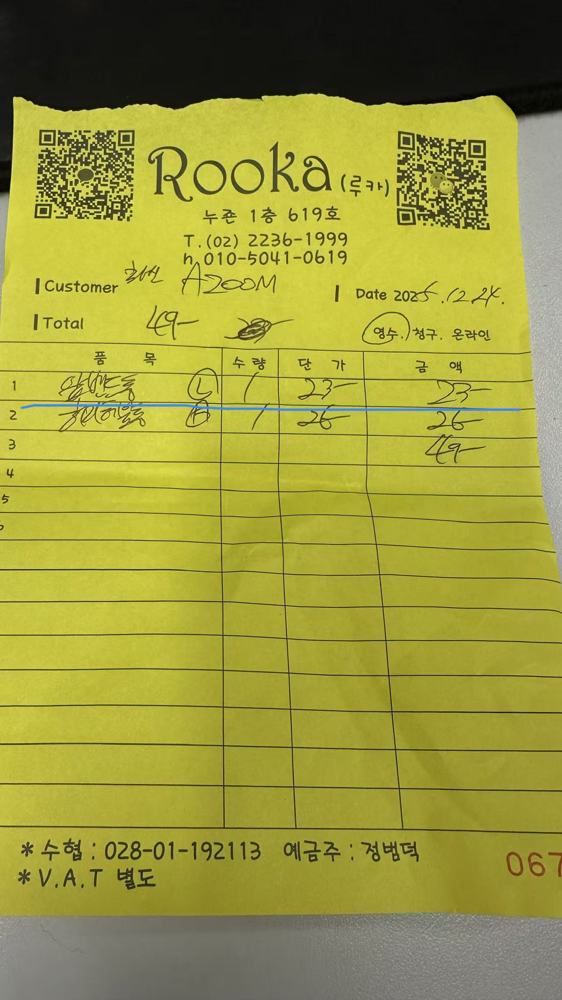 Rooka (루카)
누죤 1층 619호
T.(02) 2236-1999
h.010-5041-0619
Customer AZOOM
Date 2025.12.24.
Total 49-
영수. 청구. 온라인
품 목 수 량 단 가 금 액
1 L 1 23- 23-
2 1 26- 26-
3 49-
4
5
* 수협 : 028-01-192113 예금주 : 정범덕
067
* V.A.T 별도